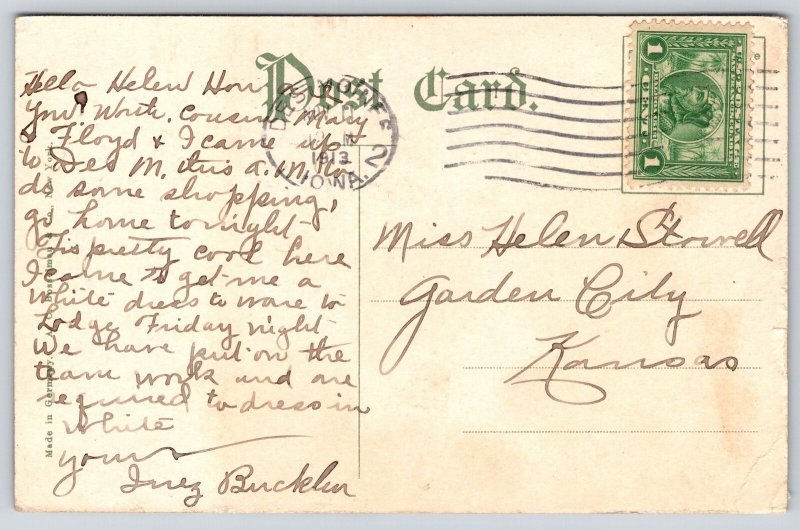 Post Card.
Hello Helen How
your Worth. cousin Mary
Floyd & I came up
to Des M. this a.m. to
do some shopping,
go home tonight-
Tis pretty cool here
I came to get me a
White dress to ware to
Lodge Friday night-
We have put on the
team work and are
required to dress in
White
yours
Inez Bucklin
DES MOINES
1913
IOWA.
2
1
1
Miss Helen Stowell
Garden City
Kansas
Made in Germany.
New York.